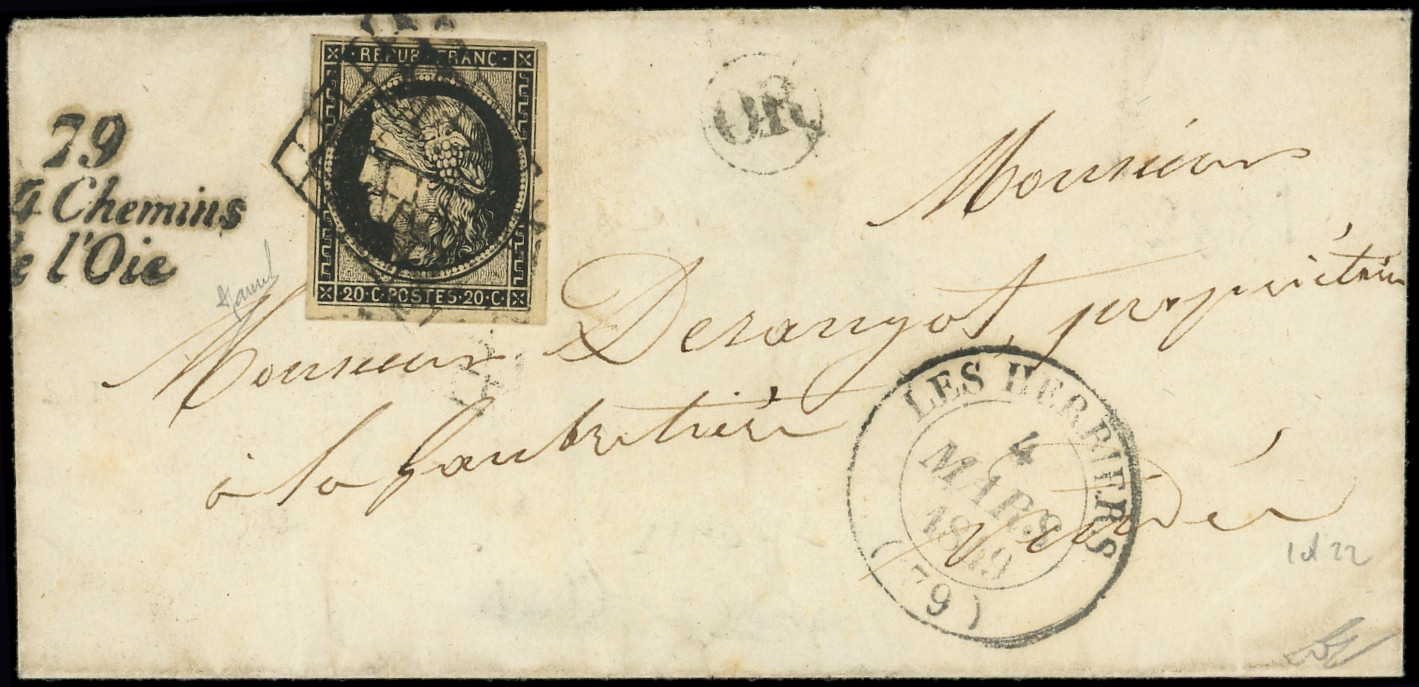 79
4 Chemins
e l'Oie
REPUB FRANC
20·C·POSTES·20·C·
OR
Monsieur
Monsieur Derangot, propriétaire
à la
LES HERBIERS
4
MARS
1849
(79)
Vendée